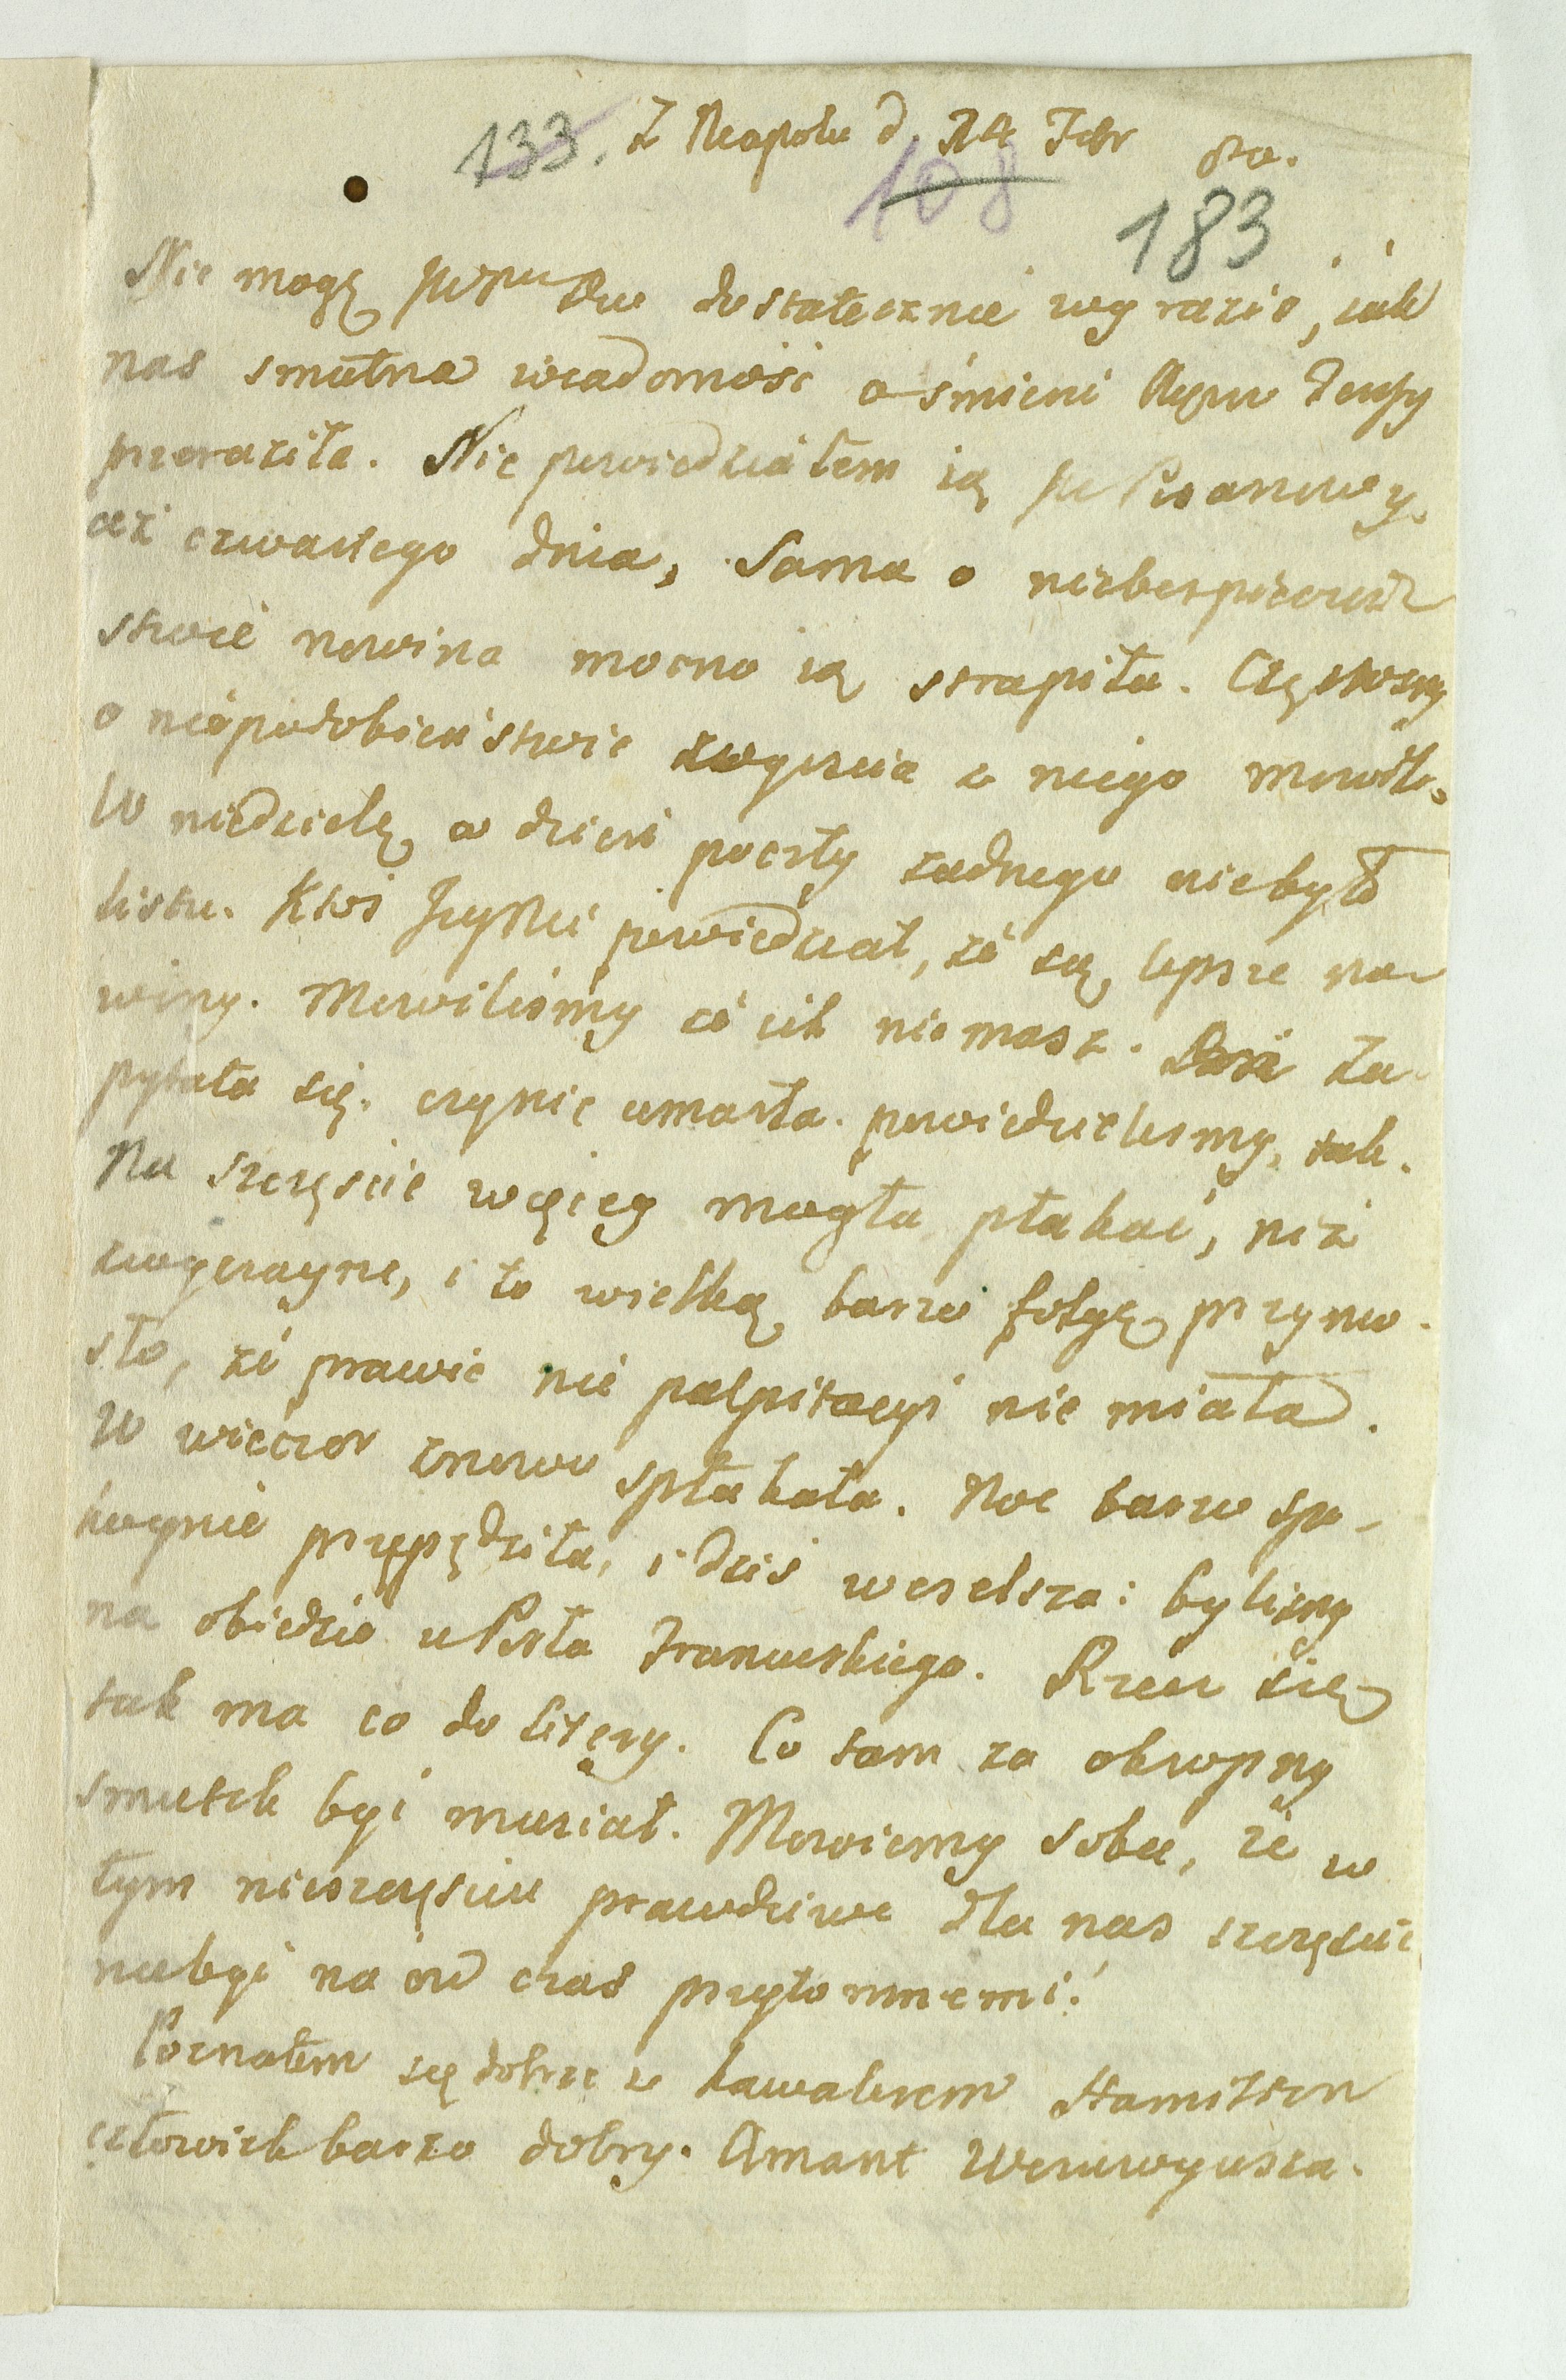 133. Z Neapolu d. 24 Febr 80.
108
183
Nie mogę dostatecznie wyrazić, iak
nas smutna wiadomość o śmierci
przeraziła. Nie powiedziałem ią
aż czwartego dnia, Sama o niebespieczeń
stwie nowina mocno ią strapiła. Częstośmy
o niepodobieństwie wyiscia z niego mowili.
W niedzielę a dzień poczty żadnego niebyło
listu. Ktoś powiedział, że są lepsze no
winy. Mowilismy że ich nie masz. za
pytała się. czynie umarła. powiedzielismy, tak.
Na szczęscie więcey mogła płakać, niż
zwyczayne, i to wielką barzo folgę przynio
sło, że prawie nie palpitacyi nie miała.
W wieczor znowu spłakała. Noc barzo spo-
koynie przępędziła, i dziś weselsza: bylismy
na obiedzie u Posła Francuskiego. Rzecz się
tak ma co do litery. Co tam za okropny
smutek byċ musiał. Mowiemy sobie, że w
tym nieszczęsciu prawdziwe dla nas szczęscie
niebyċ na ow czas przytomnemi!
Poznałem się dobrze z kawalerem Hamilton
człowiek barzo dobry. Amant Wezuwyusza.